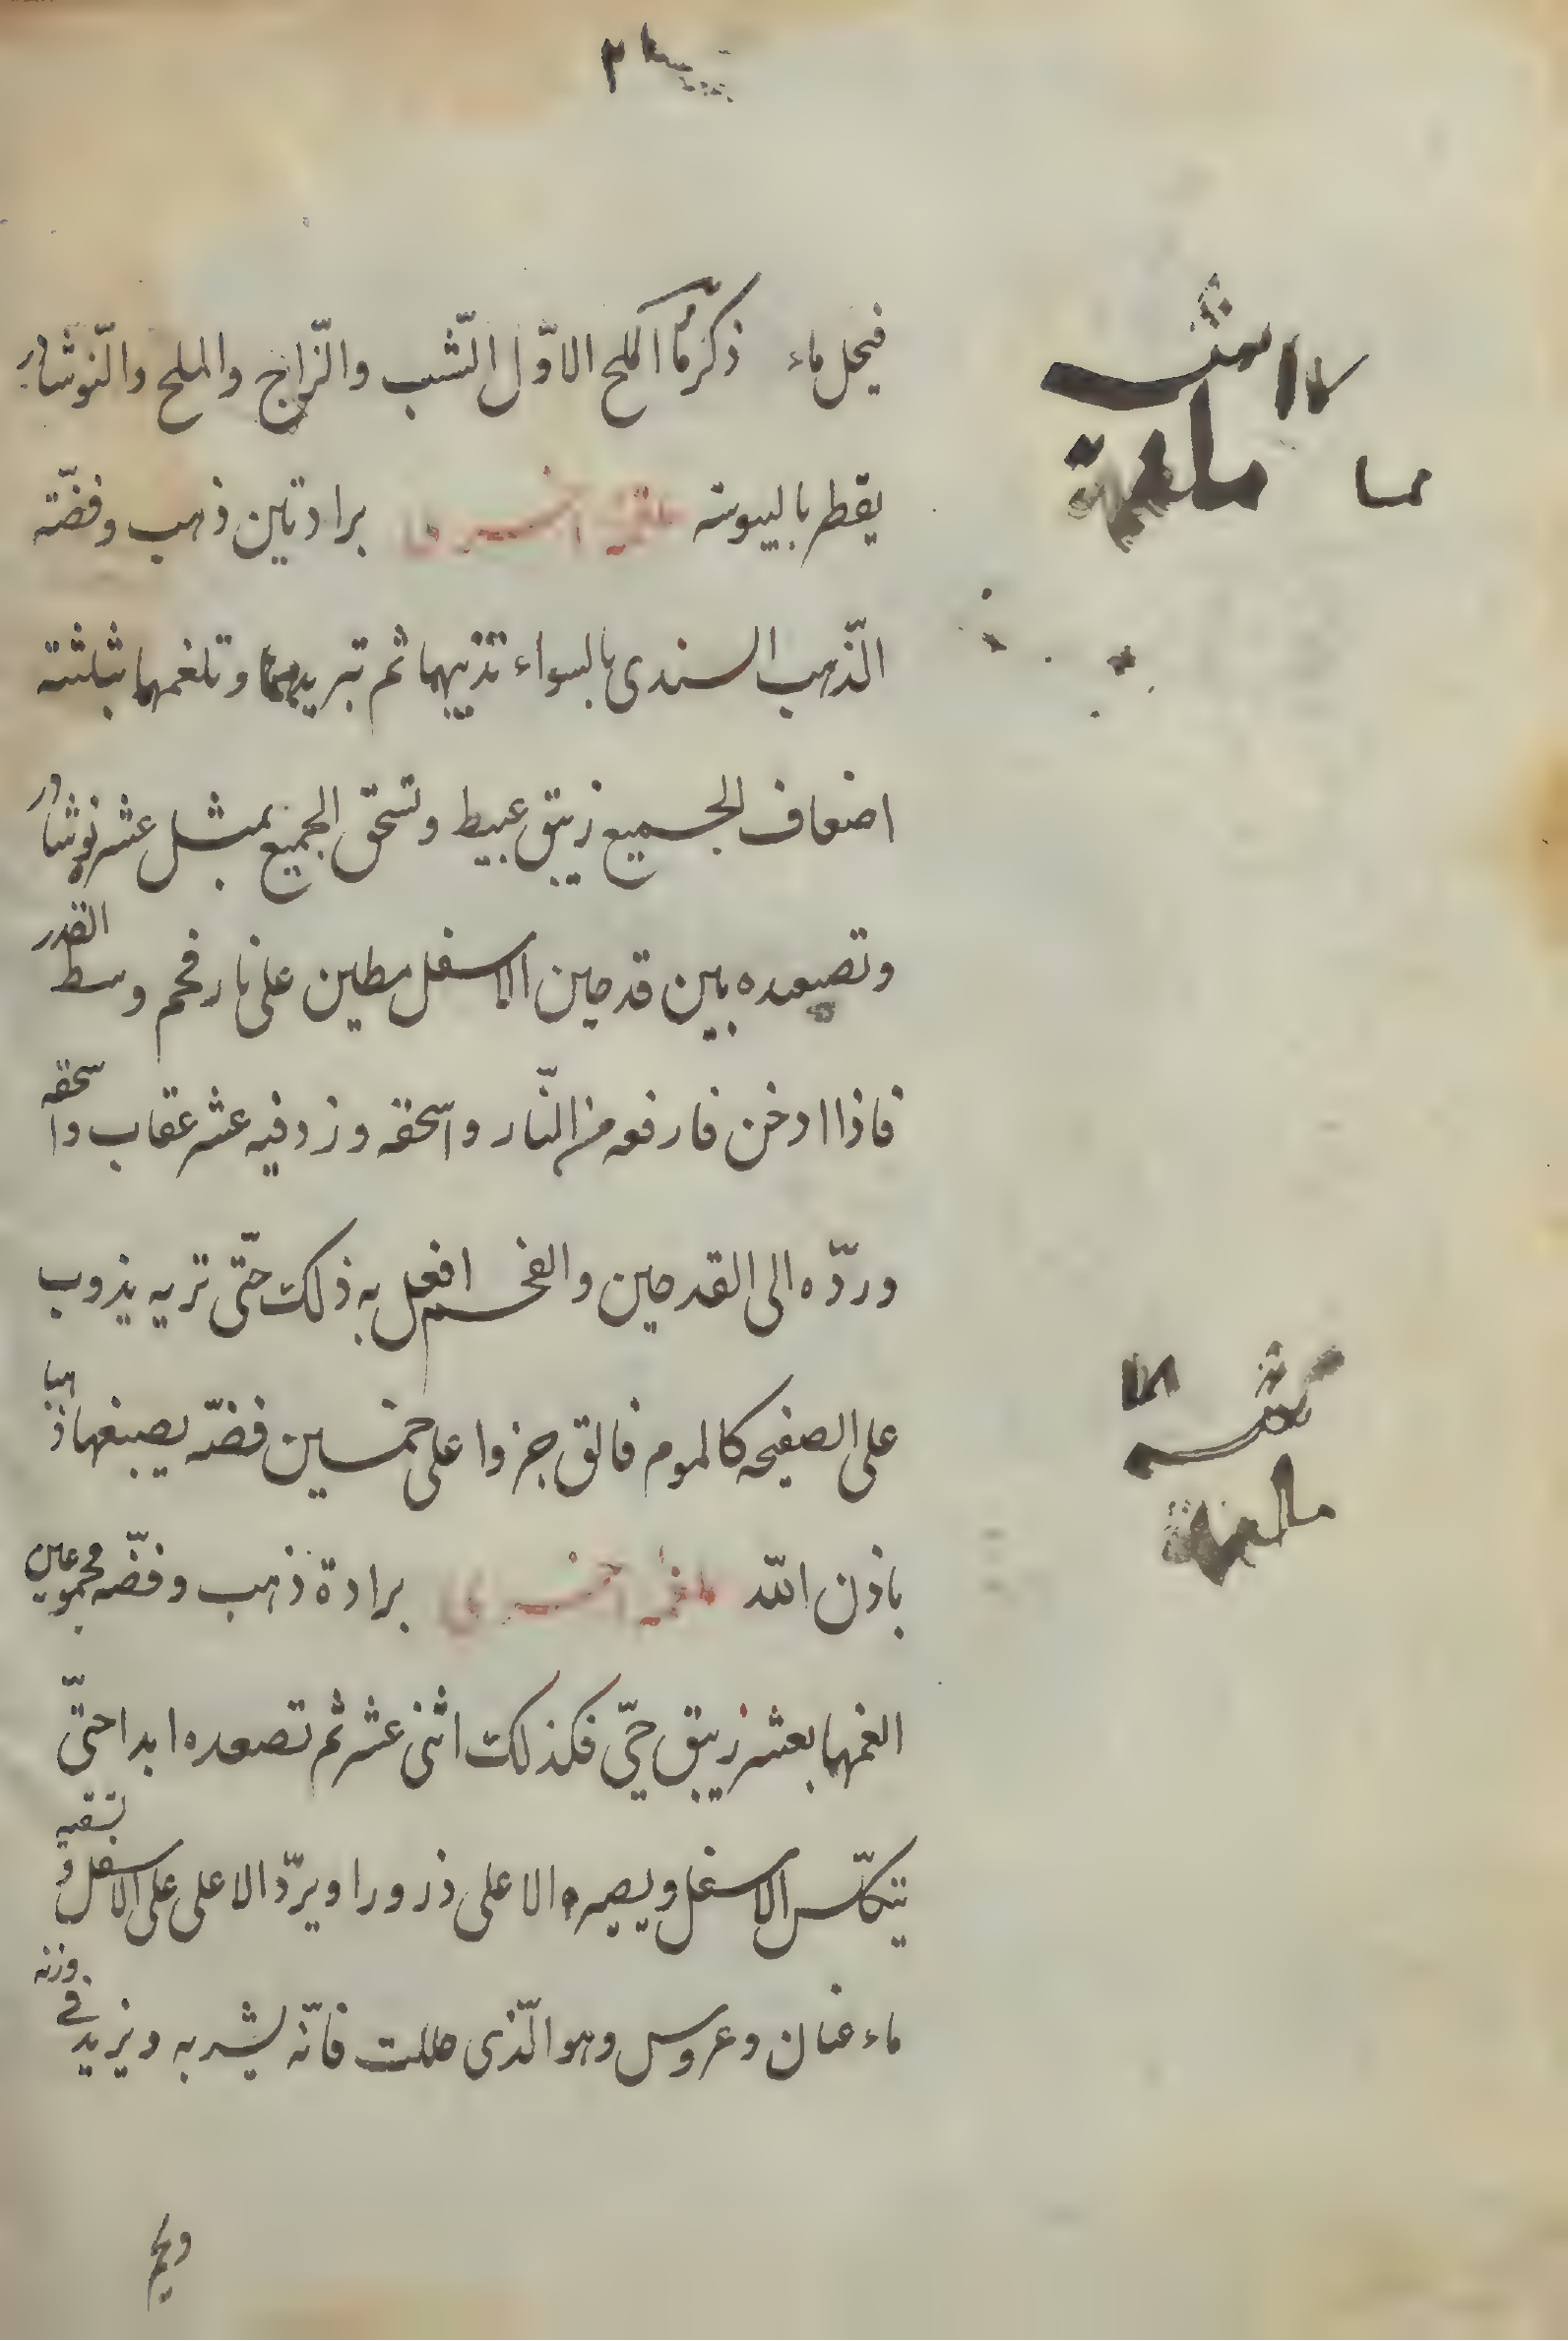 فيحل ماء ذكر ماء الملح الاوّل الشّب والزّاج والملح والنّوشادر
يقطر باليبوسة ملغمة اخرى براد تين ذهب وفضّة
الذّهب السندى بالسواء تذيبهما ثم تبريدهما وتلغمهما بثلثة
اضعاف الجميع زيبق عبيط وتسحق الجميع بمثل عشر نوشادر
وتصعده بين قدحين الاسفل مطين على نار فحم وسط القدر
فاذا ادخن فارفعه من النّار واسحقه وزد فيه عشر عقاب واسحقه
وردّه الى القدحين والفحم افعل به ذلك حتّى تريه يذوب
على الصفيحه كالموم فالق جزوا على خمسين فضّه يصبغها ذهبا
باذن اللّه ملغمة اخرى برادة ذهب وفضّه مجموعين
الغمهما بعشر زيبق حيّ فكذلك اثنى عشر ثم تصعده ابدا حتّى
يتكلّس الاسفل ويصير الاعلى ذرورا ويردّ الاعلى على الاسفل وتسقيه
ماء عنان وعروس وهو الّذى حللت فانّه يشربه ويزيد فى وزنه